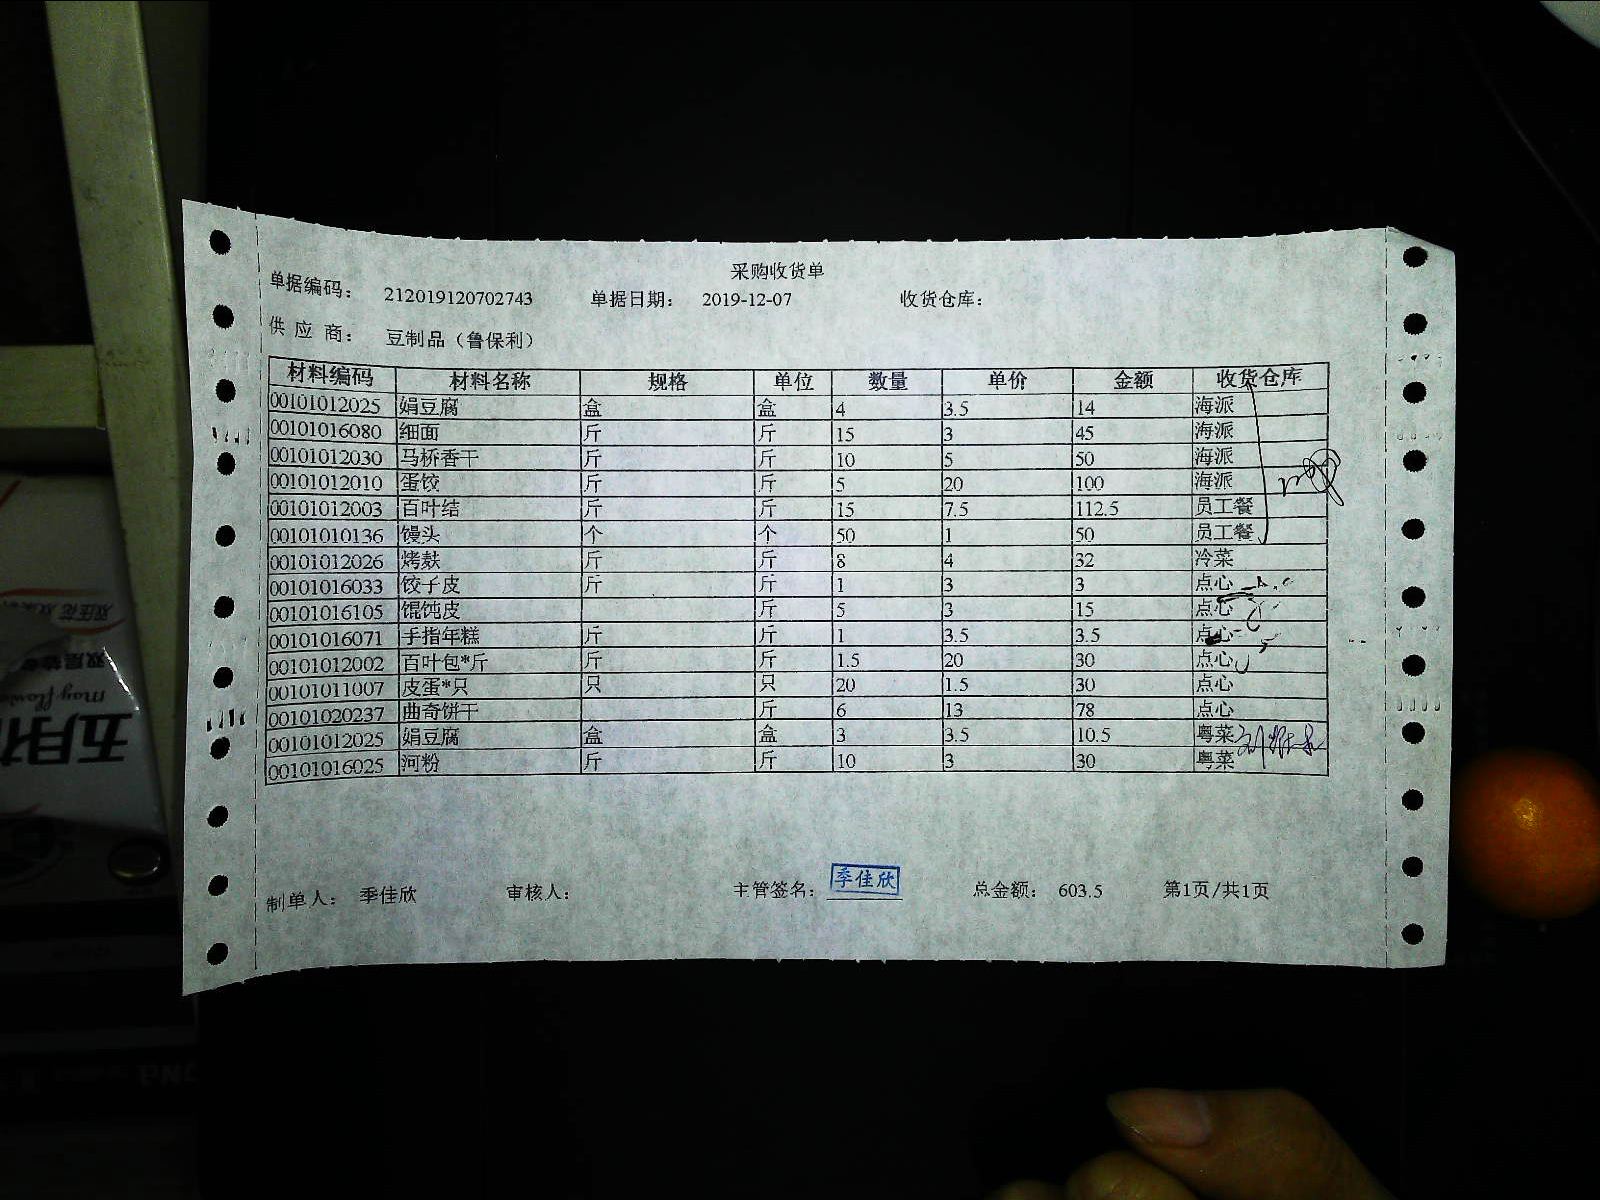 采购收货单
单据编码： 212019120702743 单据日期： 2019-12-07 收货仓库：
供 应 商： 豆制品（鲁保利）
材料编码 材料名称 规格 单位 数量 单价 金额 收货仓库
00101012025 娟豆腐 盒 盒 4 3.5 14 海派
00101016080 细面 斤 斤 15 3 45 海派
00101012030 马桥香干 斤 斤 10 5 50 海派
00101012010 蛋饺 斤 斤 5 20 100 海派
00101012003 百叶结 斤 斤 15 7.5 112.5 员工餐
00101010136 馒头 个 个 50 1 50 员工餐
00101012026 烤麸 斤 斤 8 4 32 冷菜
00101016033 饺子皮 斤 斤 1 3 3 点心
00101016105 馄饨皮 斤 5 3 15 点心
00101016071 手指年糕 斤 斤 1 3.5 3.5 点心
00101012002 百叶包*斤 斤 斤 1.5 20 30 点心
00101011007 皮蛋*只 只 只 20 1.5 30 点心
00101020237 曲奇饼干 斤 6 13 78 点心
00101012025 娟豆腐 盒 盒 3 3.5 10.5 粤菜
00101016025 河粉 斤 斤 10 3 30 粤菜
制单人： 季佳欣 审核人： 主管签名： 季佳欣 总金额： 603.5 第1页/共1页
五月花